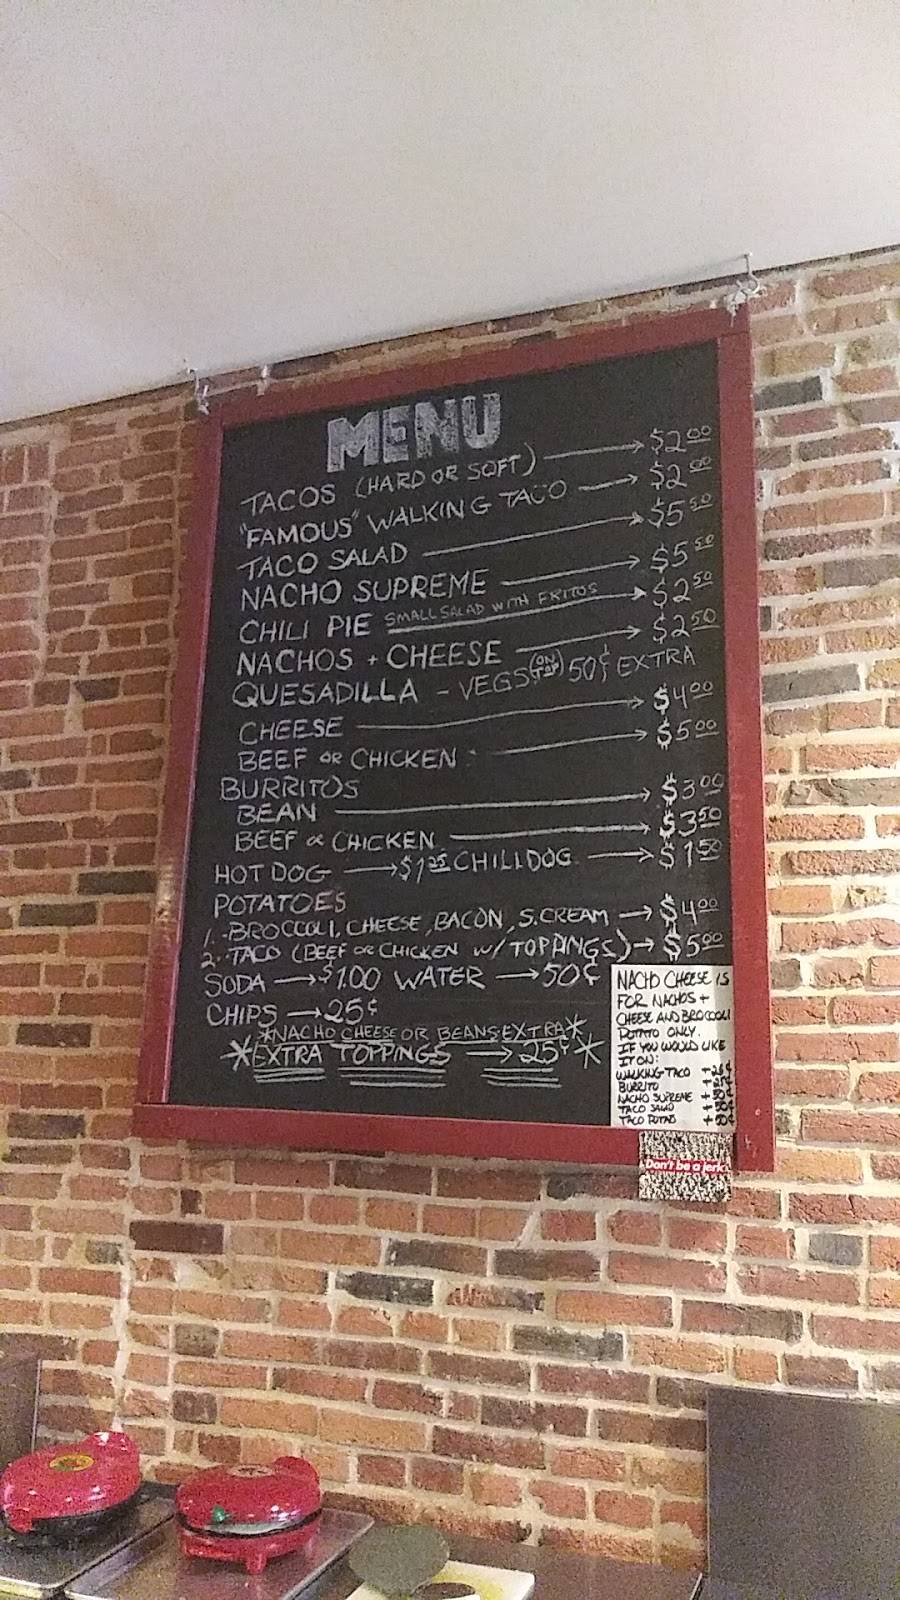 MENU
TACOS (HARD OR SOFT) $2.00
"FAMOUS" WALKING TACO $2.00
TACO SALAD $5.50
NACHO SUPREME $5.50
CHILI PIE SMALL SALAD WITH FRITOS $2.50
NACHOS + CHEESE $2.50
QUESADILLA - VEGS (ON TOP) 50¢ EXTRA
CHEESE $4.00
BEEF OR CHICKEN $5.00
BURRITOS
BEAN $3.00
BEEF OR CHICKEN $3.50
HOT DOG $1.25 CHILI DOG $1.50
POTATOES
1.-BROCCOLI, CHEESE, BACON, S.CREAM $4.00
2.-TACO (BEEF OR CHICKEN W/ TOPPINGS) $5.00
SODA $1.00 WATER 50¢
CHIPS 25¢
*NACHO CHEESE OR BEANS EXTRA*
*EXTRA TOPPINGS 25¢*
NACHO CHEESE IS
FOR NACHOS +
CHEESE AND BROCCOLI
POTATO ONLY.
IF YOU WOULD LIKE
IT ON:
WALKING TACO
BURRITO
NACHO SUPREME
TACO SALAD
TACO
Don't be a jerk